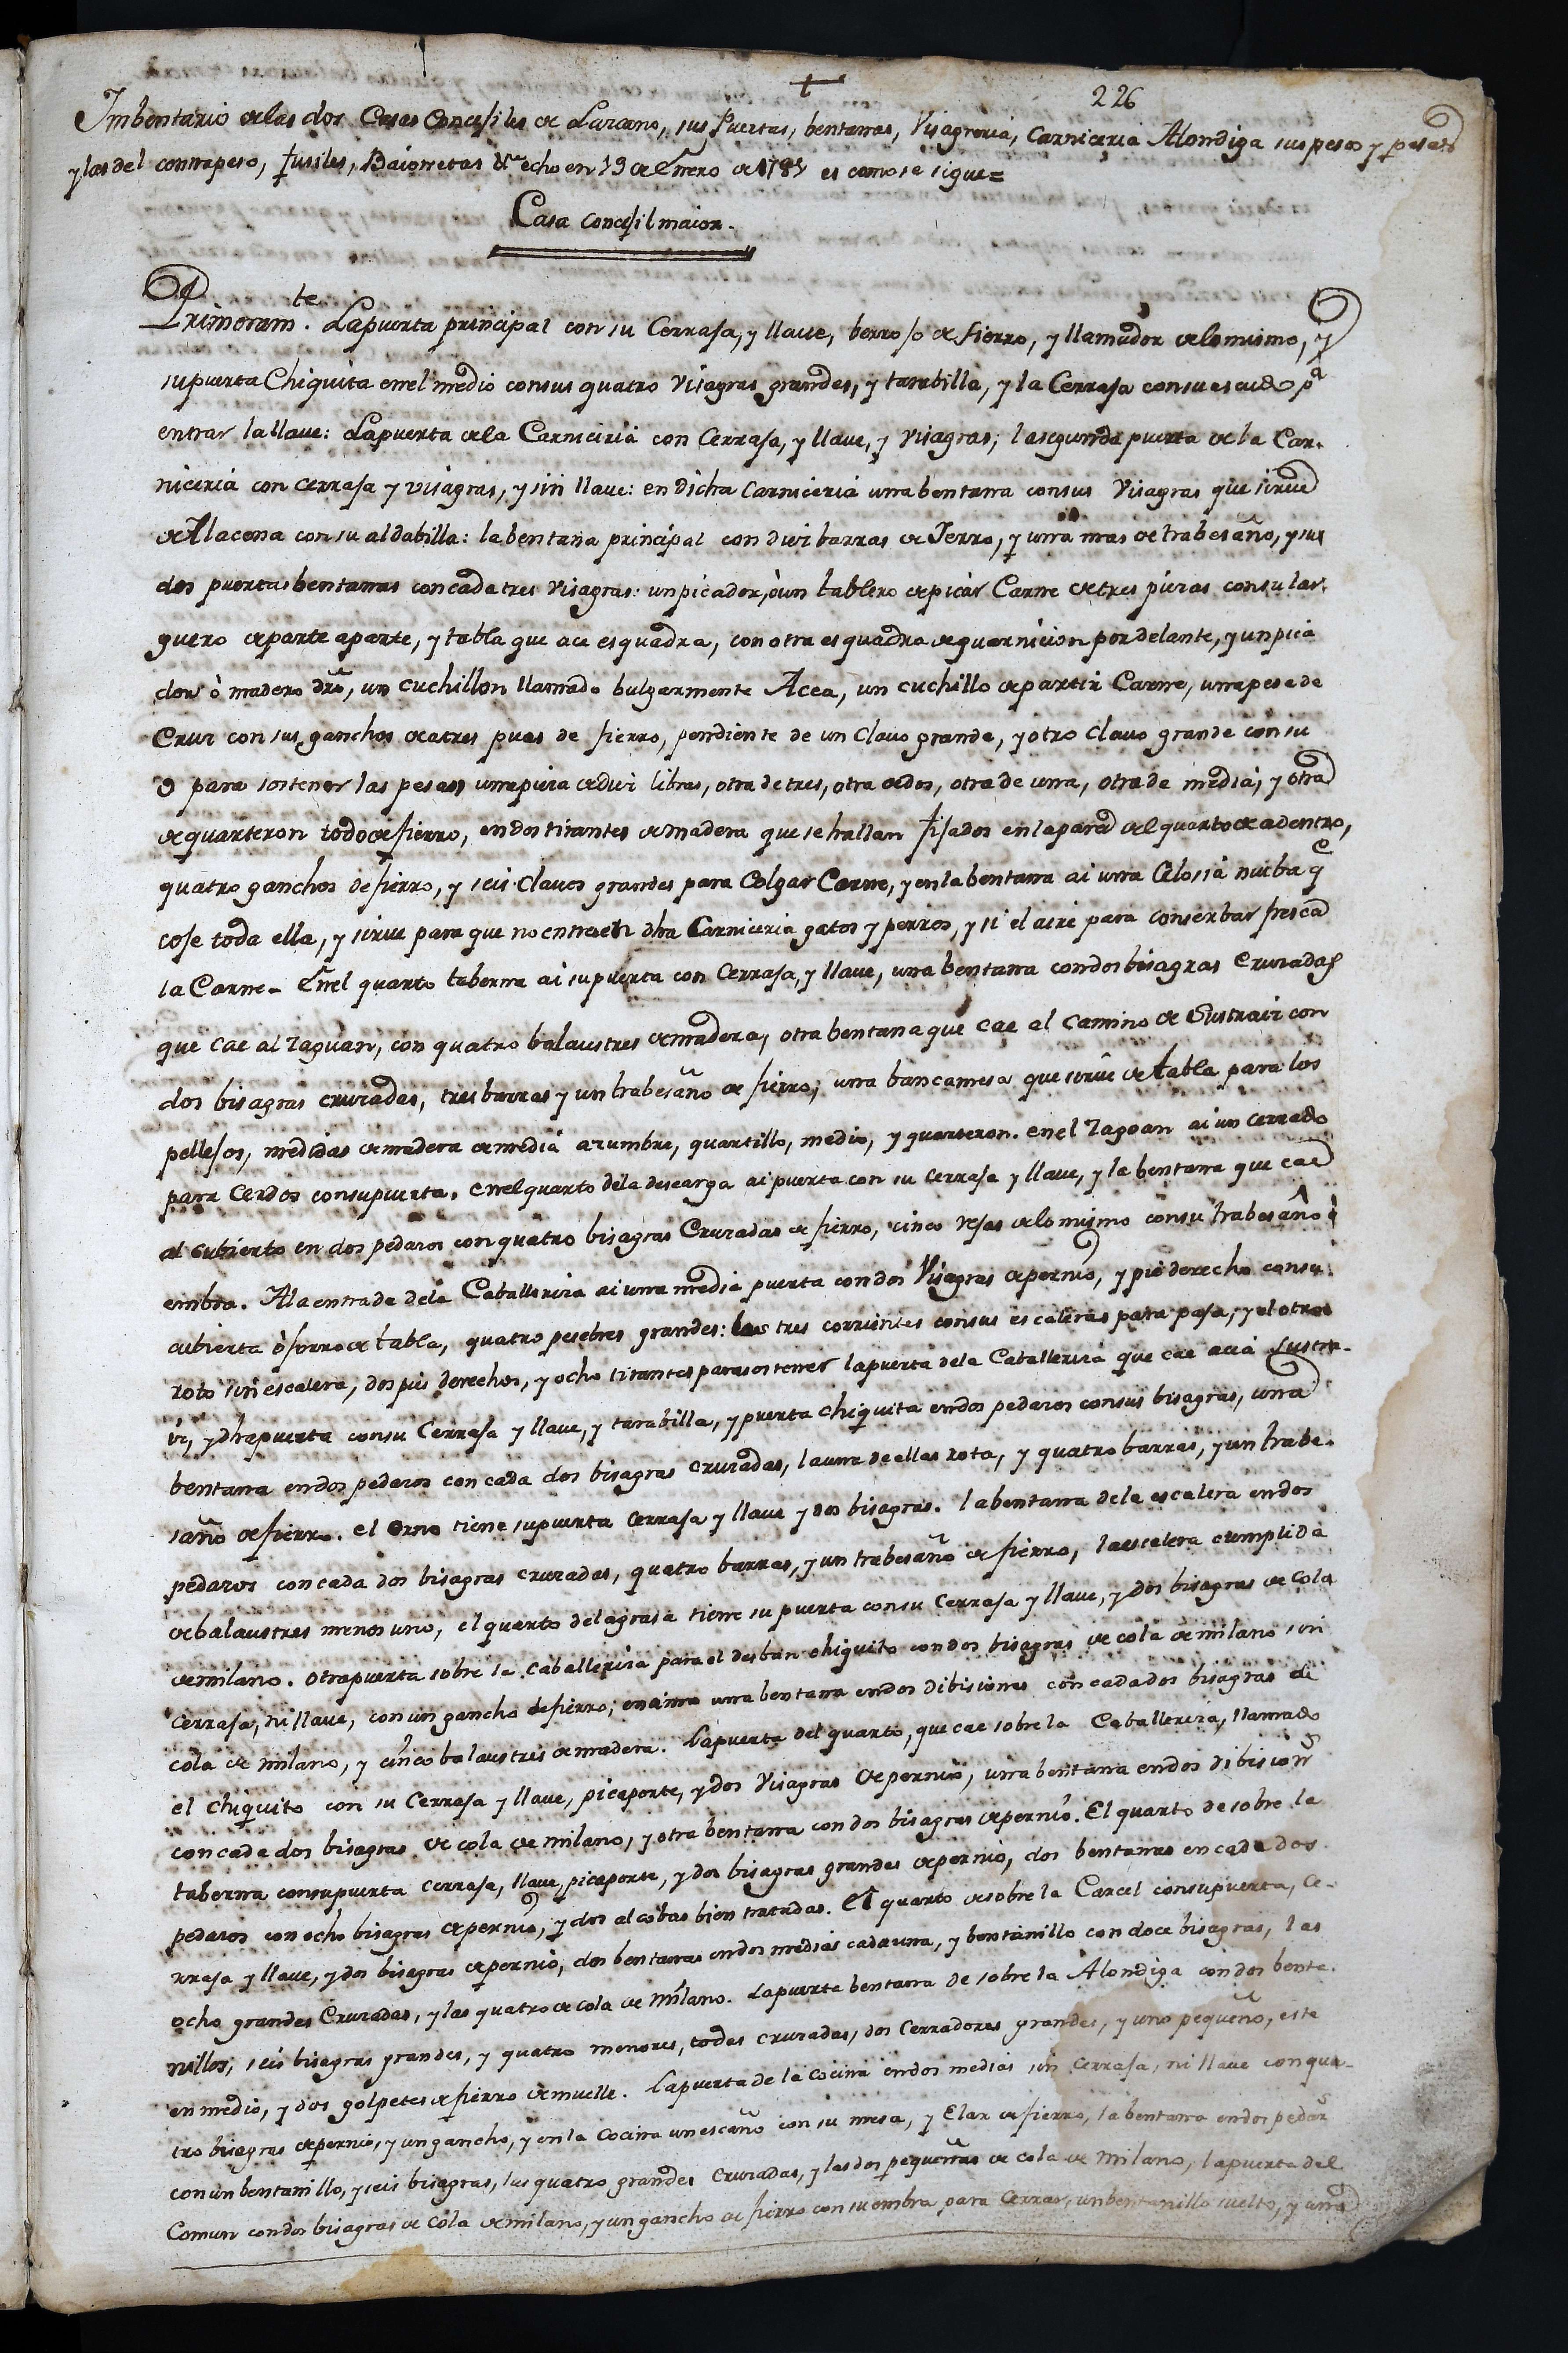 †
226
Imbentario de las dos Casas Concejiles de Lazcano, sus Puertas, bentanas, Visagreria, Carniceria Alondiga sus pesos y pesas
y las del contrapeso, fusiles, Baionetas &ª echo en 19 de Enero de 1785 es como se sigue=
Casa concejil maior.
Primeramte. La puerta principal con su Cerraja, y llave, berrojo de fierro, y llamador de lo mismo, y
su puerta Chiquita en el medio con sus quatro Visagras grandes, y tarabilla, y la Cerraja con su escudo pª
entrar la llave: La puerta de la Carniceria con Cerraja, y llave, y Visagras; la segunda puerta de la Car-
niceria con cerraja y visagras, y sin llave: en dicha Carniceria una bentana con sus Visagras que sirve
de Alacena con su aldabilla: la bentana principal con diez barras de Fierro, y una mas de trabesaño, y sus
dos puertas bentanas con cada tres Visagras: un picador, ò un tablero de picar Carne de tres piezas con su lar-
guero de parte a parte, y tabla que ace esquadra, con otra esquadra de guarnicion por delante, y un pica
dor ò madero dro, un cuchillon llamado bulgarmente Acea, un cuchillo de partir Carne, una pesa de
Cruz con sus ganchos de a tres puas de fierro, pendiente de un Clavo grande, y otro Clavo grande con su
O para sostener las pesas una pieza de diez libras, otra de tres, otra de dos, otra de una, otra de media, y otra
de quarteron todo de fierro, en dos tirantes de madera que se hallan fijados en la pared del quarto de adentro,
quatro ganchos de fierro, y seis Clavos grandes para Colgar Carne, y en la bentana ai una Celosia nueba q
coje toda ella, y sirve para que no entre en dha Carniceria gatos y perros, y si el aire para conserbar fresca
la Carne. En el quarto taberna ai su puerta con Cerraja, y llave, una bentana con dos bisagras Cruzadas
que cae al Zaguan, con quatro balaustres de madera, otra bentana que cae al Camino de Sustraiz con
dos bisagras cruzadas, tres barras y un trabesaño de fierro; una banca mesa que sirve de tabla para los
pellejos, medidas de madera de media azumbre, quartillo, medio, y quarteron. en el Zagoan ai un Cerrado
para Cerdos con su puerta. en el quarto de la descarga ai puerta con su cerraja y llave, y la bentana que cae
al cubierto en dos pedazos con quatro bisagras Cruzadas de fierro, cinco rejas de lo mismo con su trabesaño ò
embra. A la entrada de la Caballeriza ai una media puerta con dos Visagras de pernio, y pie derecho con su
cubierta ò forro de tabla, quatro pesebres grandes: los tres corrientes con sus escaleras para paja, y el otro
roto sin escalera, dos pies derechos, y ocho tirantes para sostener la puerta de la Caballeriza que cae acia Sustra-
iz, y dha puerta con su Cerraja y llave, y tarabilla, y puerta chiquita en dos pedazos con sus bisagras, una
bentana en dos pedazos con cada dos bisagras cruzadas, la una de ellas rota, y quatro barras, y un trabe-
saño de fierro. el orno tiene su puerta cerraja y llave y dos bisagras. la bentana de la escalera en dos
pedazos con cada dos bisagras cruzadas, quatro barras, y un trabesaño de fierro, la escalera cumplida
de balaustres menos uno, el quarto de la grasa tiene su puerta con su Cerraja y llave, y dos bisagras de cola
de milano. otra puerta sobre la Caballeriza para el desban chiquito con dos bisagras de cola de milano sin
cerraja, ni llave, con un gancho de fierro; encima una bentana en dos dibisiones con cada dos bisagras de
cola de milano, y cinco balaustres de madera. La puerta del quarto, que cae sobre la Caballeriza, llamado
el chiquito con su Cerraja y llave, picaporte, y dos Visagras de pernio, una bentana en dos dibisions
con cada dos bisagras de cola de milano, y otra bentana con dos bisagras de pernio. El quarto de sobre la
taberna con su puerta cerraja, llave, picaporte, y dos bisagras grandes de pernio, dos bentanas en cada dos
pedazos con ocho bisagras de pernio, y dos alcobas bien tratadas. El quarto de sobre la Carcel con su puerta, Ce-
rraja y llave, y dos bisagras de pernio, dos bentanas en dos medias cada una, y bentanillo con doce bisagras, las
ocho grandes Cruzadas, y las quatro de cola de milano. La puerta bentana de sobre la Alondiga con dos benta-
nillos, seis bisagras grandes, y quatro menores, todas cruzadas, dos Cerradores grandes, y uno pequeño, este
en medio, y dos golpetes de fierro de muelle. La puerta de la Cocina en dos medias sin cerraja, ni llave con qua-
tro bisagras de pernio, y un gancho, y en la Cocina un escaño con su mesa, y Elar de fierro, la bentana en dos pedazs
con un bentanillo, y seis bisagras, las quatro grandes cruzadas, y las dos pequeñas de cola de milano, la puerta del
Comun con dos bisagras de cola de milano, y un gancho de fierro con su embra para Cerrar, un bentanillo suelto, y una